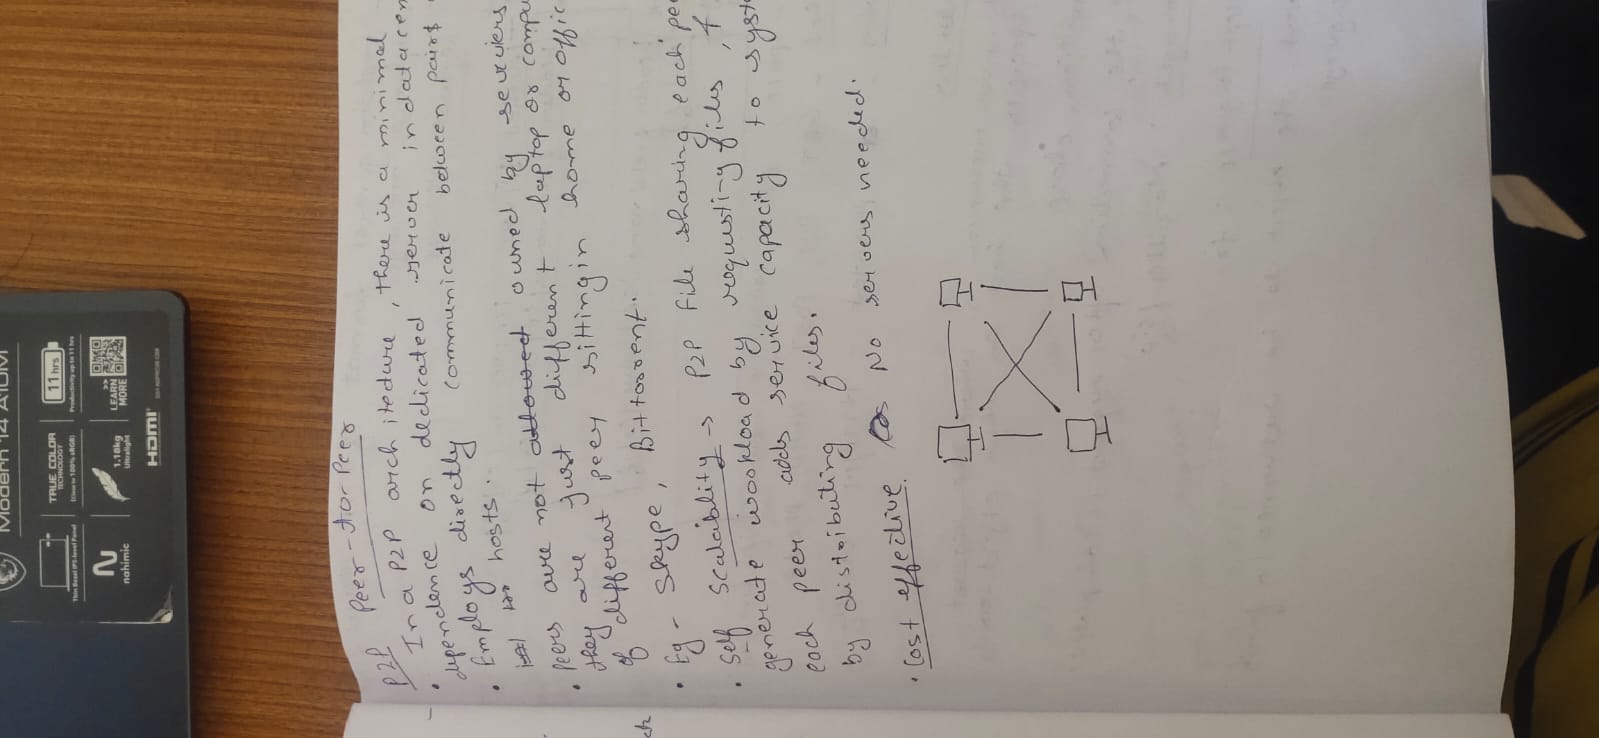 Modern 14 A10M
Thin Bezel IPS-level Panel
TRUE COLOR
TECHNOLOGY
(Close to 100% sRGB)
11 hrs
Productivity up to 11 hrs
nahimic
1.18kg
Ultralight
>>
LEARN
MORE
HDMI
P2P Peer-to-Peer
• In a P2P architedure, there is a minimal
dependence on dedicated server in data cen
• Employs directly communicate between pairs
hosts.
• Peers are not allowed owned by servers
they are just different laptop or compu
of different peer sitting in home or offic
• Eg - Skype, Bittorrent.
• Self Scalablity → P2P file sharing each pe
generate workload by requesting files, &
each peer adds service capacity to syst
by distributing files.
• Cost effective No servers needed.